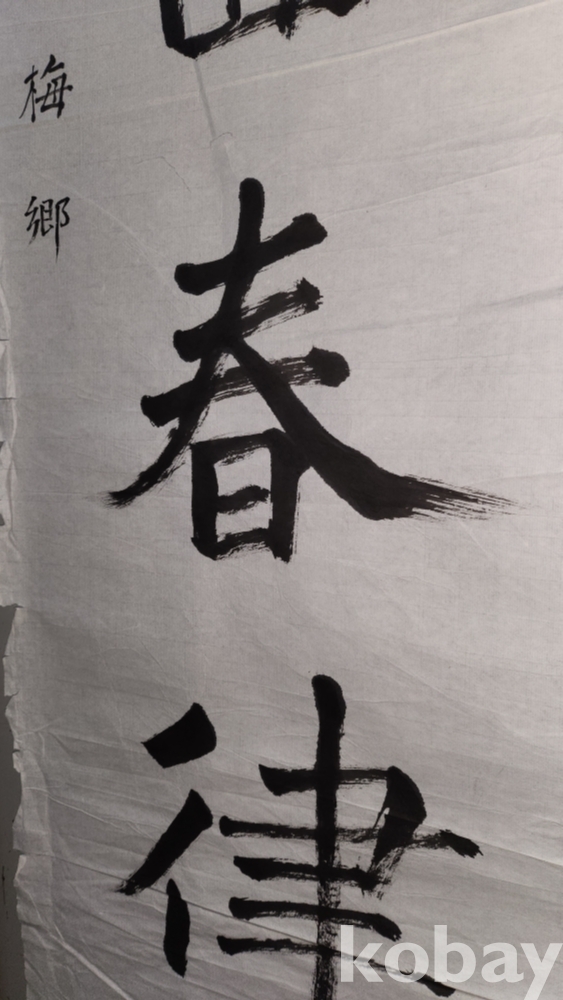 春律
梅鄉
kobay